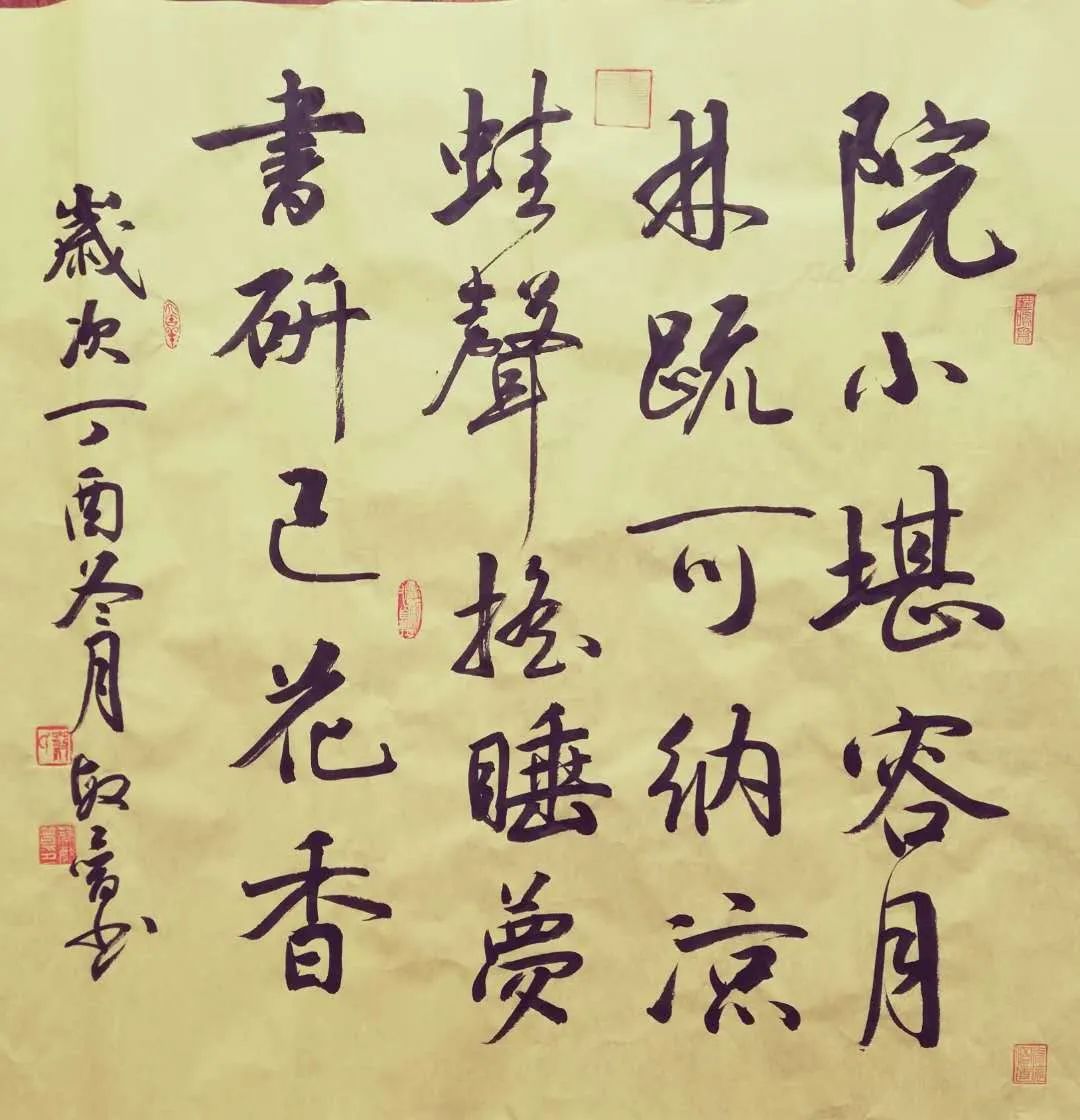 院小堪容月
林疏可纳凉
蛙聲搖睡夢
書研已花香
歲次丁酉冬月敏書